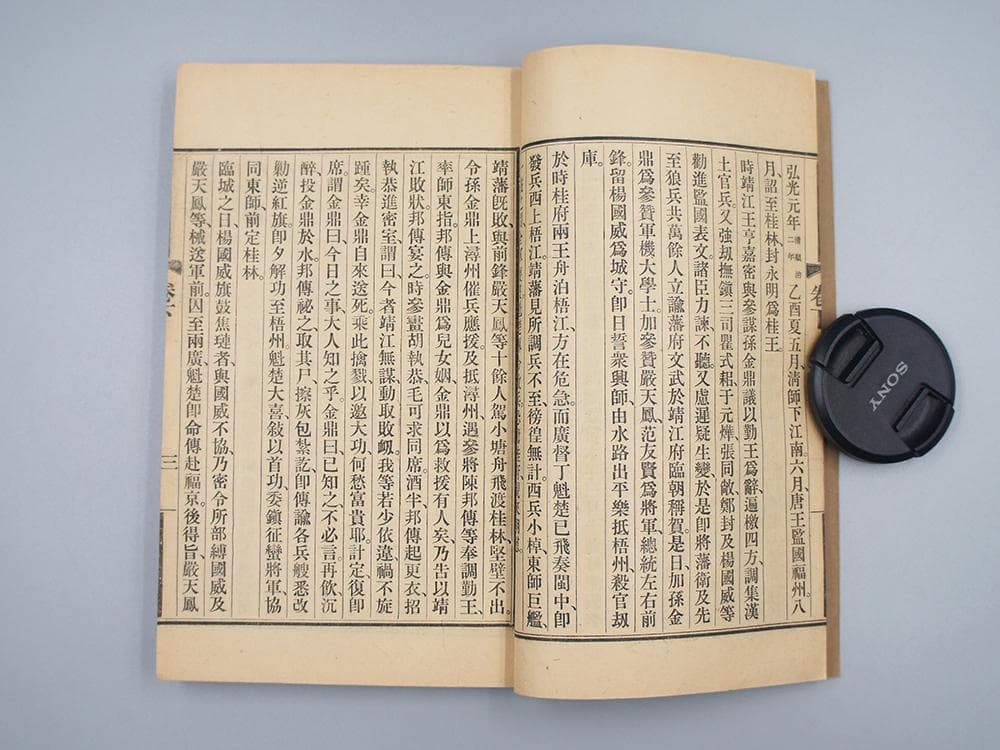 弘光元年清順治二年乙酉夏五月、淸師下江南。六月、唐王監國福州。八
月、詔至桂林、封永明爲桂王。
時靖江王亨嘉密與參謀孫金鼎議以勤王爲辭、遍檄四方、調集漢
土官兵。又強刼撫鎭三司瞿式耜、于元燁、張同敞、鄭封及楊國威等
勸進監國表文。諸臣力諫、不聽。又慮遲疑生變、於是卽將藩衛及先
至狼兵共萬餘人立諭藩府文武於靖江府臨朝稱賀。是日加孫金
鼎爲參贊軍機大學士、加參贊嚴天鳳、范友賢爲將軍、總統左右前
鋒、留楊國威爲城守。卽日誓衆興師、由水路出平樂、抵梧州、殺官刼
庫。
於時桂府兩王舟泊梧江、方在危急。而廣督丁魁楚已飛奏閩中、卽
發兵西上梧江。靖藩見所調兵不至、徬徨無計。西兵小棹、東師巨艦、
靖藩旣敗、與前鋒嚴天鳳等十餘人駕小塘舟飛渡桂林、堅壁不出。
令孫金鼎上潯州催兵應援。及抵潯州、遇參將陳邦傳等奉調勤王、
率師東指。邦傳與金鼎爲兒女姻、金鼎以爲救援有人矣、乃告以靖
江敗狀。邦傳宴之。時參畫胡執恭、毛可求同席。酒半、邦傳起更衣、招
執恭進密室、謂曰、今者靖江無謀動、取敗衂。我等若少依違、禍不旋
踵矣。幸金鼎自來送死。乘此擒戮、以邀大功、何愁富貴耶。計定復卽
席。謂金鼎曰、今日之事、大人知之乎。金鼎曰、已知之、不必言。再飮沉
醉、投金鼎於水。邦傳祕之、取其尸、擦灰包紮訖、卽傳諭各兵艘、悉改
勦逆紅旗。卽夕解功至梧州。魁楚大喜、敍以首功、委鎭征蠻將軍、協
同東師前定桂林。
臨城之日、楊國威旗鼓焦璉者與國威不協、乃密令所部縛國威及
嚴天鳳等、械送軍前、囚至兩廣。魁楚卽命傳赴福京。後得旨、嚴天鳳
三
SONY